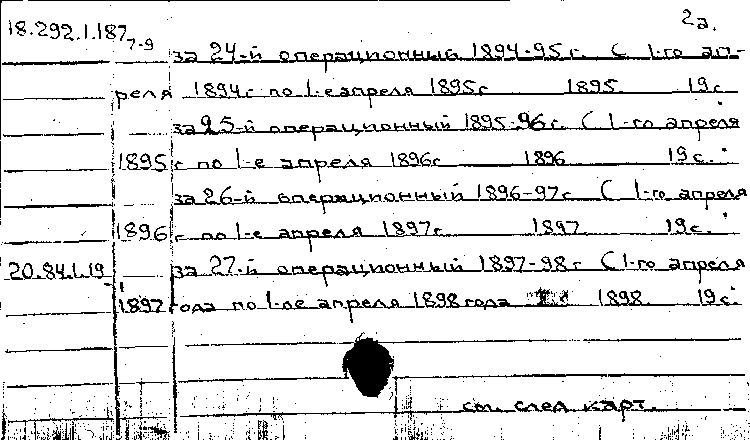 2а.
18.292.1.187
7-9
за 24-й операционный 1894-95 г. С 1-го ап-
реля 1894 г по 1-е апреля 1895 г 1895. 19 с.
за 25-й операционный 1895-96 г. С 1-го апреля
1895 г по 1-е апреля 1896 г 1896 19 с.
за 26-й операционный 1896-97 г С 1-го апреля
1896 г по 1-е апреля 1897 г. 1897. 19 с.
20.84.1.19 за 27-й операционный 1897-98 г С 1-го апреля
1897 года по 1-ое апреля 1898 года 1898. 19 с.
см. след. карт.